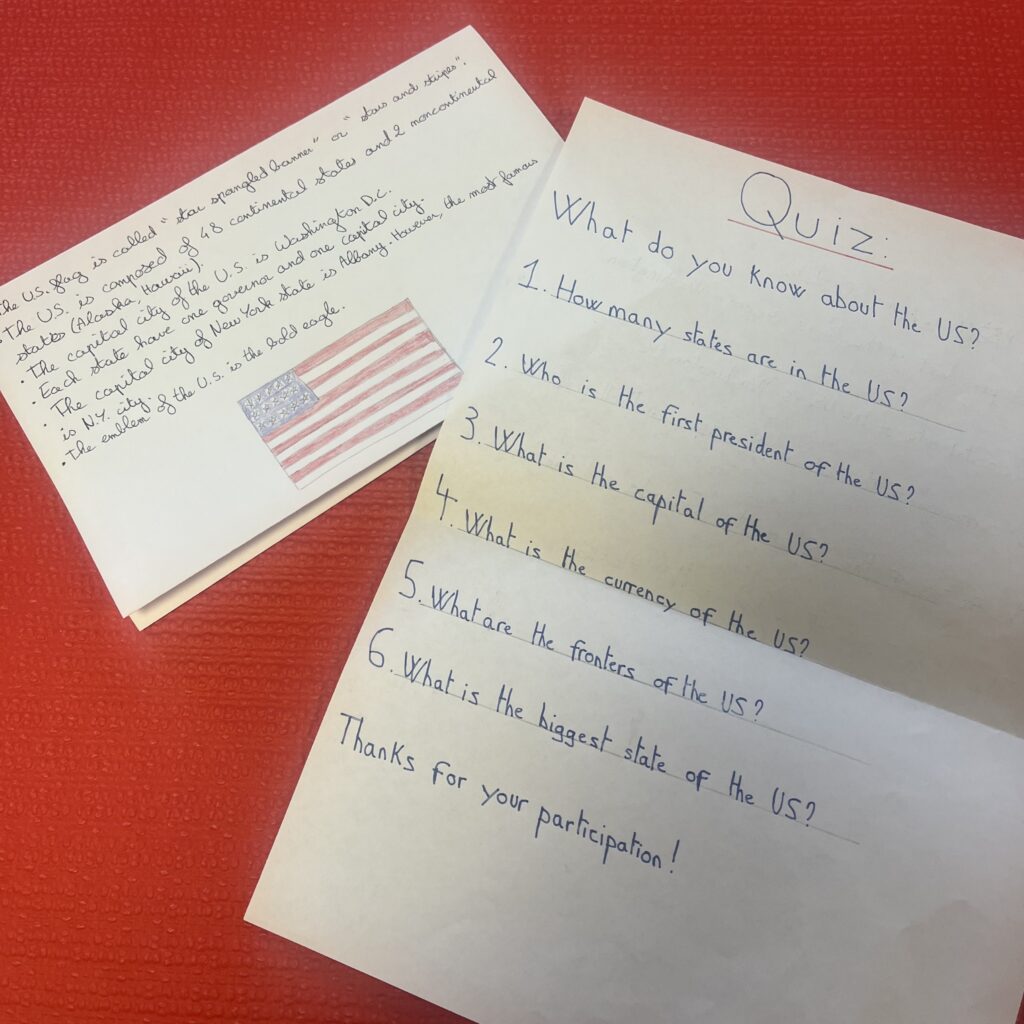 The U.S. flag is called "star spangled banner" or "stars and stripes".
• The US. is composed of 48 continental states and 2 noncontinental
states (Alaska, Hawaii).
• The capital city of the U.S. is Washington D.C.
• Each state have one governor and one capital city.
• The capital city of New York state is Albany. However, the most famous
is N.Y. city.
• The emblem of the U.S. is the bald eagle.
Quiz:
What do you know about the US?
1. How many states are in the US?
2. Who is the first president of the US?
3. What is the capital of the US?
4. What is the currency of the US?
5. What are the fronters of the US?
6. What is the biggest state of the US?
Thanks for your participation!